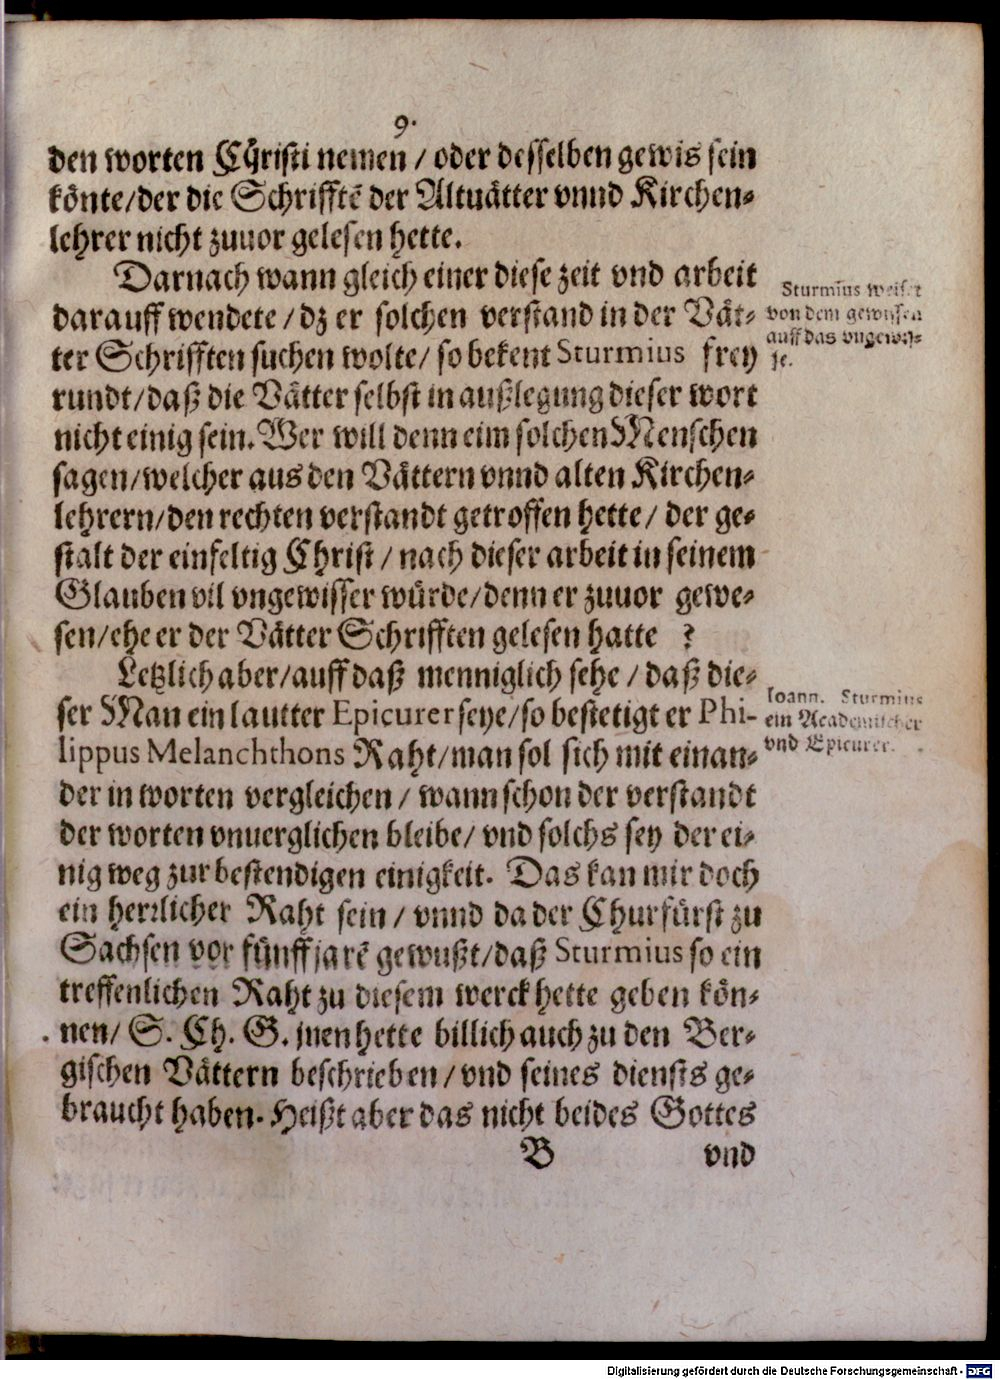 9.
den worten Christi nemen / oder desselben gewis sein
könte/der die Schrifftē der Altuätter vnnd Kirchen-
lehrer nicht zuuor gelesen hette.
Darnach wann gleich einer diese zeit vnd arbeit
darauff wendete / dz er solchen verstand in der Vät-
ter Schrifften suchen wolte/ so bekent Sturmius frey
rundt/daß die Vätter selbst in außlegung dieser wort
nicht einig sein. Wer will denn eim solchen Menschen
sagen/welcher aus den Vättern vnnd alten Kirchen-
lehrern/den rechten verstandt getroffen hette/ der ge-
stalt der einfeltig Christ / nach dieser arbeit in seinem
Glauben vil vngewisser würde/denn er zuuor gewe-
sen/ehe er der Vätter Schrifften gelesen hatte ?
Sturmius weiset
von dem gewissen
auff das vngewis-
se.
Letzlich aber/auff daß menniglich sehe / daß die-
ser Man ein lautter Epicurer seye/so bestetigt er Phi-
lippus Melanchthons Raht/man sol sich mit einan-
der in worten vergleichen / wann schon der verstandt
der worten vnuerglichen bleibe/ vnd solchs sey der ei-
nig weg zur bestendigen einigkeit. Das kan mir doch
ein herꝛlicher Raht sein / vnnd da der Churfürst zu
Sachsen vor fünff jarē gewußt/daß Sturmius so ein
treffenlichen Raht zu diesem werck hette geben kön-
nen/ S. Ch. G. jnen hette billich auch zu den Ber-
gischen Vättern beschrieben/vnd seines diensts ge-
braucht haben. Heißt aber das nicht beides Gottes
Ioann. Sturmius
ein Academischer
vnd Epicurer.
B vnd
Digitalisierung gefördert durch die Deutsche Forschungsgemeinschaft - DFG